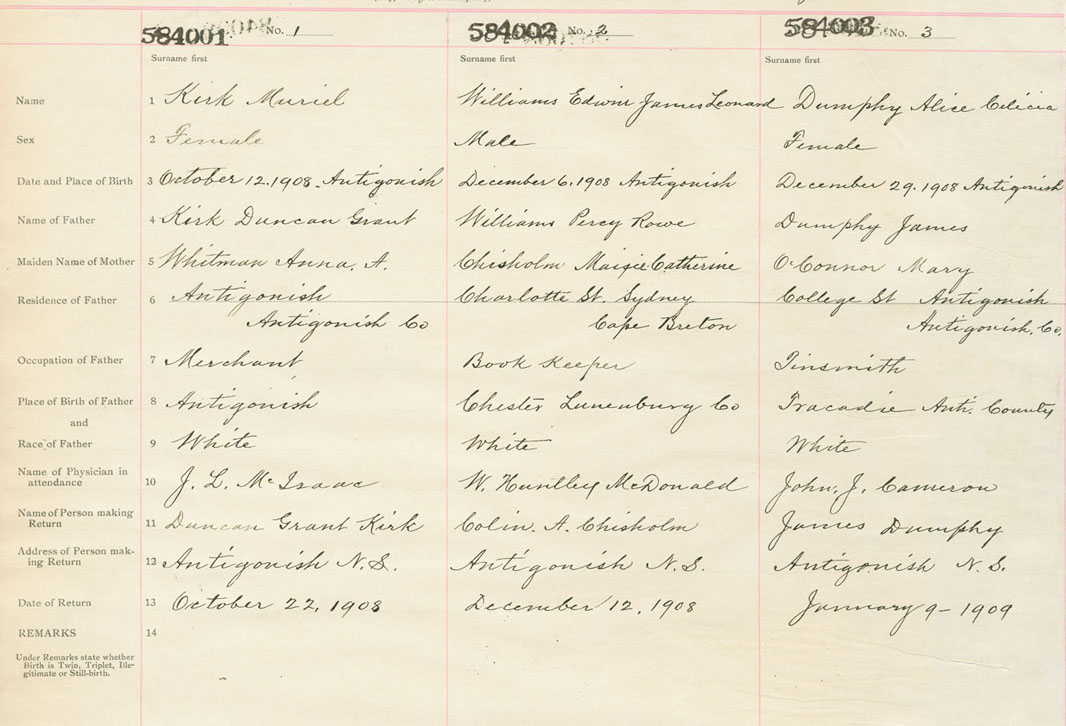 584001 No. 1 584002 No. 2 584003 No. 3
Surname first Surname first Surname first
Name 1 Kirk Muriel Williams Edwin James Leonard Dumphy Alice Celicia
Sex 2 Female Male Female
Date and Place of Birth 3 October 12. 1908. Antigonish December 6. 1908 Antigonish December 29. 1908 Antigonish
Name of Father 4 Kirk Duncan Grant Williams Percy Rowe Dumphy James
Maiden Name of Mother 5 Whitman Anna. A. Chisholm Maisie Catherine O'Connor Mary
Residence of Father 6 Antigonish Charlotte St. Sydney College St Antigonish
Antigonish Co Cape Breton Antigonish. Co.
Occupation of Father 7 Merchant Book Keeper Tinsmith
Place of Birth of Father 8 Antigonish Chester Lunenburg Co Tracadie Ant. County
and
Race of Father 9 White White White
Name of Physician in
attendance 10 J. L. McIsaac W. Huntley McDonald John. J. Cameron
Name of Person making
Return 11 Duncan Grant Kirk Colin. A. Chisholm James Dumphy
Address of Person mak-
ing Return 12 Antigonish N.S. Antigonish N.S. Antigonish N.S.
Date of Return 13 October 22, 1908 December 12, 1908 January 9 - 1909
REMARKS 14
Under Remarks state whether
Birth is Twin, Triplet, Ille-
gitimate or Still-birth.